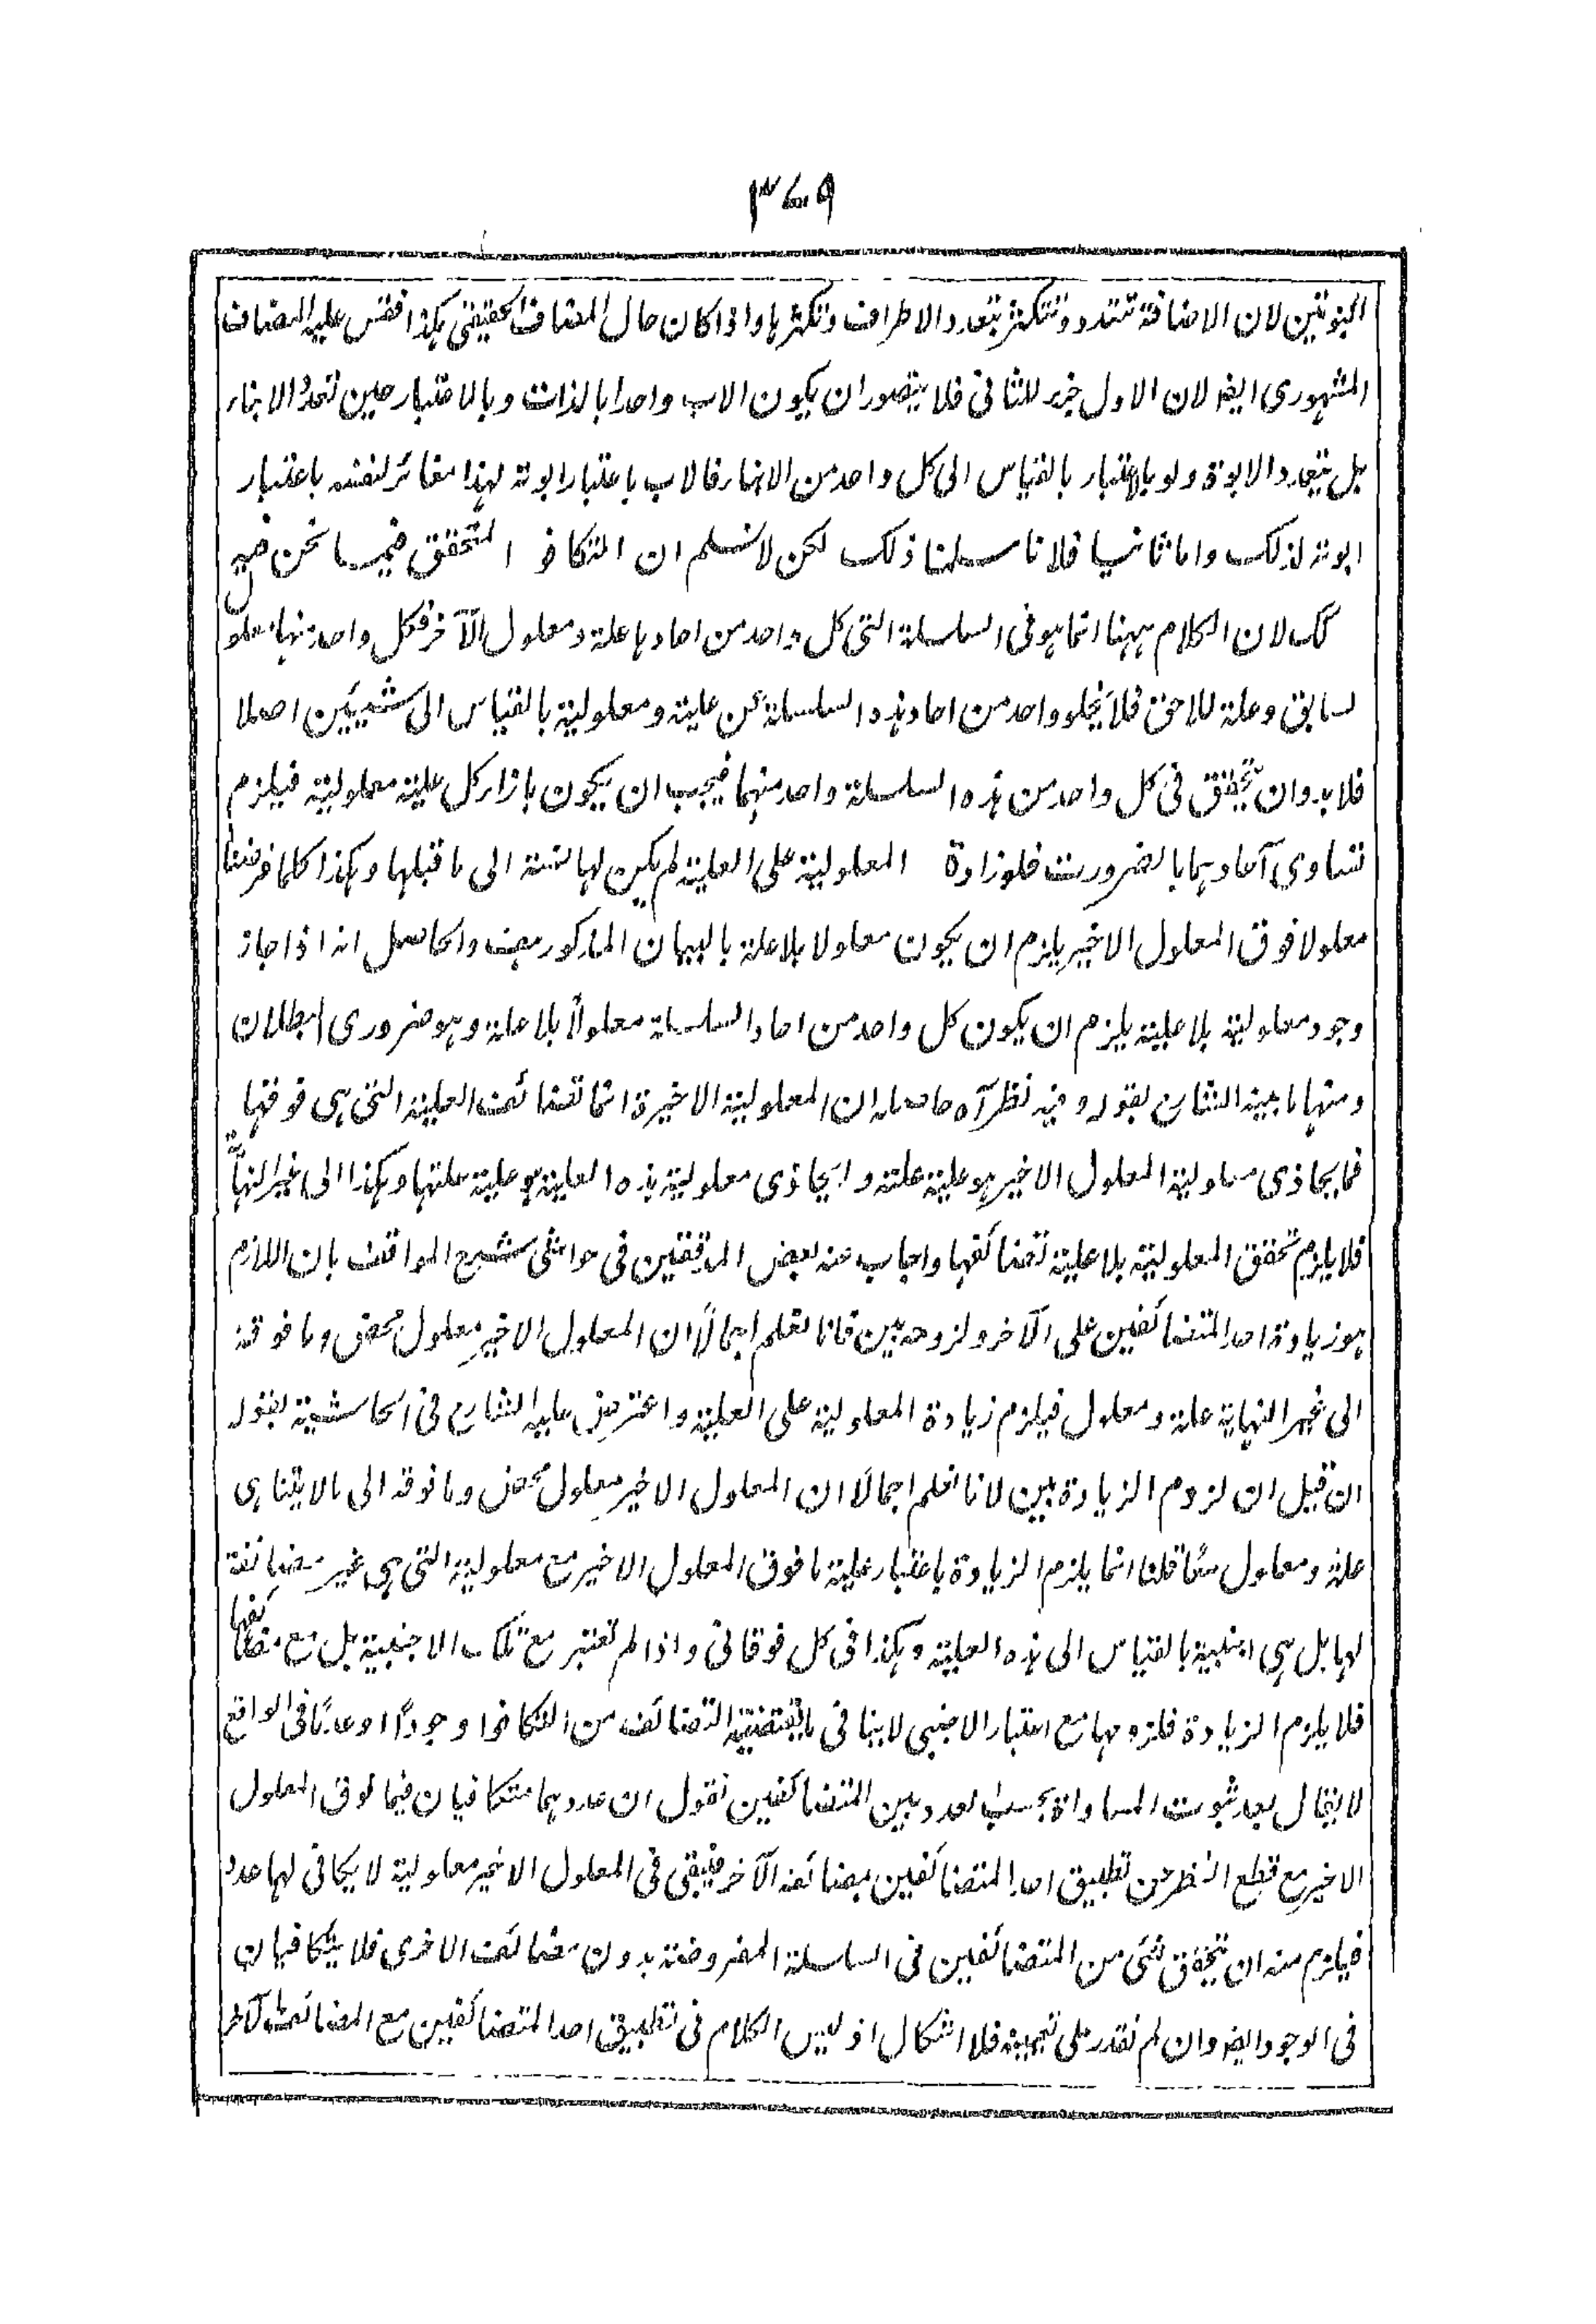 ٣٧٩
البنوتين لان الاضافة تتعدد وتتكثر بتعدد الاطراف وتكثرها واذا كان حال المضاف الحقيقى هكذا فقس عليه المضاف
المشهورى ايضا لان الاول جزء للثانى فلا يتصور ان يكون الاب واحدا بالذات وبالاعتبار حين تعدد الابناء
بل يتعدد الابوة ولو بالاعتبار بالقياس الى كل واحد من الابناء فالاب باعتبار ابوته لهذا مغائر لنفسه باعتبار
ابوته لذلك واما ثانيا فلانا سلمنا ذلك لكن لا نسلم ان التكافؤ المتحقق فيما نحن فيه
كك لان الكلام ههنا انما هو فى السلسلة التى كل واحد من احادها علة ومعلول لآخر فكل واحد منها معلول
لسابق وعلة للاحق فلا يخلو واحد من احاد هذه السلسلة عن علية ومعلولية بالقياس الى شيئين اصلا
فلا بد وان يتحقق فى كل واحد من هذه السلسلة واحد منهما فيجب ان يكون بازاء كل علية معلولية فيلزم
تساوى آحادهما بالضرورت فلو زادة المعلولية على العلية لم يكن لها نسبة الى ما قبلها وهكذا كلما فرضنا
معلولا فوق المعلول الاخير يلزم ان يكون معلولا بلا علة بالبيان المذكور بعينه والحاصل انه اذا جاز
وجود معلولية بلا علية يلزم ان يكون كل واحد من احاد السلسلة معلولاً بلا علة وهو ضرورى البطلان
ومنها ما بينه الشارح بقوله وفيه نظر آه حاصله ان المعلولية الاخيرة انما تضائف العلية التى هى فوقها
فما يحاذى معلولية المعلول الاخير هو علية علته وما يحاذى معلولية هذه العلية هو علية علتها وهكذا الى غير النهاية
فلا يلزم تحقق المعلولية بلا علية تضائفها واجاب عنه بعض المدققين فى حواشى شرح المواقف بان اللازم
هو زيادة احد المتضائفين على الآخر ولزومه بين فانا نعلم اجمالاً ان المعلول الاخير معلول محض وما فوقه
الى غير النهاية علة ومعلول فيلزم زيادة المعلولية على العلية واعترض عليه الشارح فى الحاشية بقوله
ان قيل ان لزوم الزيادة بين لانا نعلم اجمالا ان المعلول الاخير معلول محض وما فوقه الى ما لا يتناهى
علة ومعلول معًا قلنا انما يلزم الزيادة باعتبار علية ما فوق المعلول الاخير مع معلولية التى هى غير مضائفة
لها بل هى اجنبية بالقياس الى هذه العلية وهكذا فى كل فوقانى واذا لم تعتبر مع تلك الاجنبية بل مع مضائفها
فلا يلزم الزيادة فلزومها مع اعتبار الاجنبى لا ينافى ما يقتضيه التضائف من التكافؤ وجوداً او عدمًا فى الواقع
لا يقال بعد ثبوت المساواة بحسب العدد بين المتضائفين نقول ان عددهما متكافيان فيما فوق المعلول
الاخير مع قطع النظر عن تطبيق احد المتضائفين بمضائفه الآخر فيبقى فى المعلول الاخير معلولية لا يكافى لها عدد
فيلزم منه ان يتحقق شئ من المتضائفين فى السلسلة المفروضة بدون مضائف الاخرى فلا يتكافيان
فى الوجود ايضا وان لم نقدر على تعيينه فلا اشكال اذ ليس الكلام فى تطبيق احد المتضائفين مع المضائف الآخر